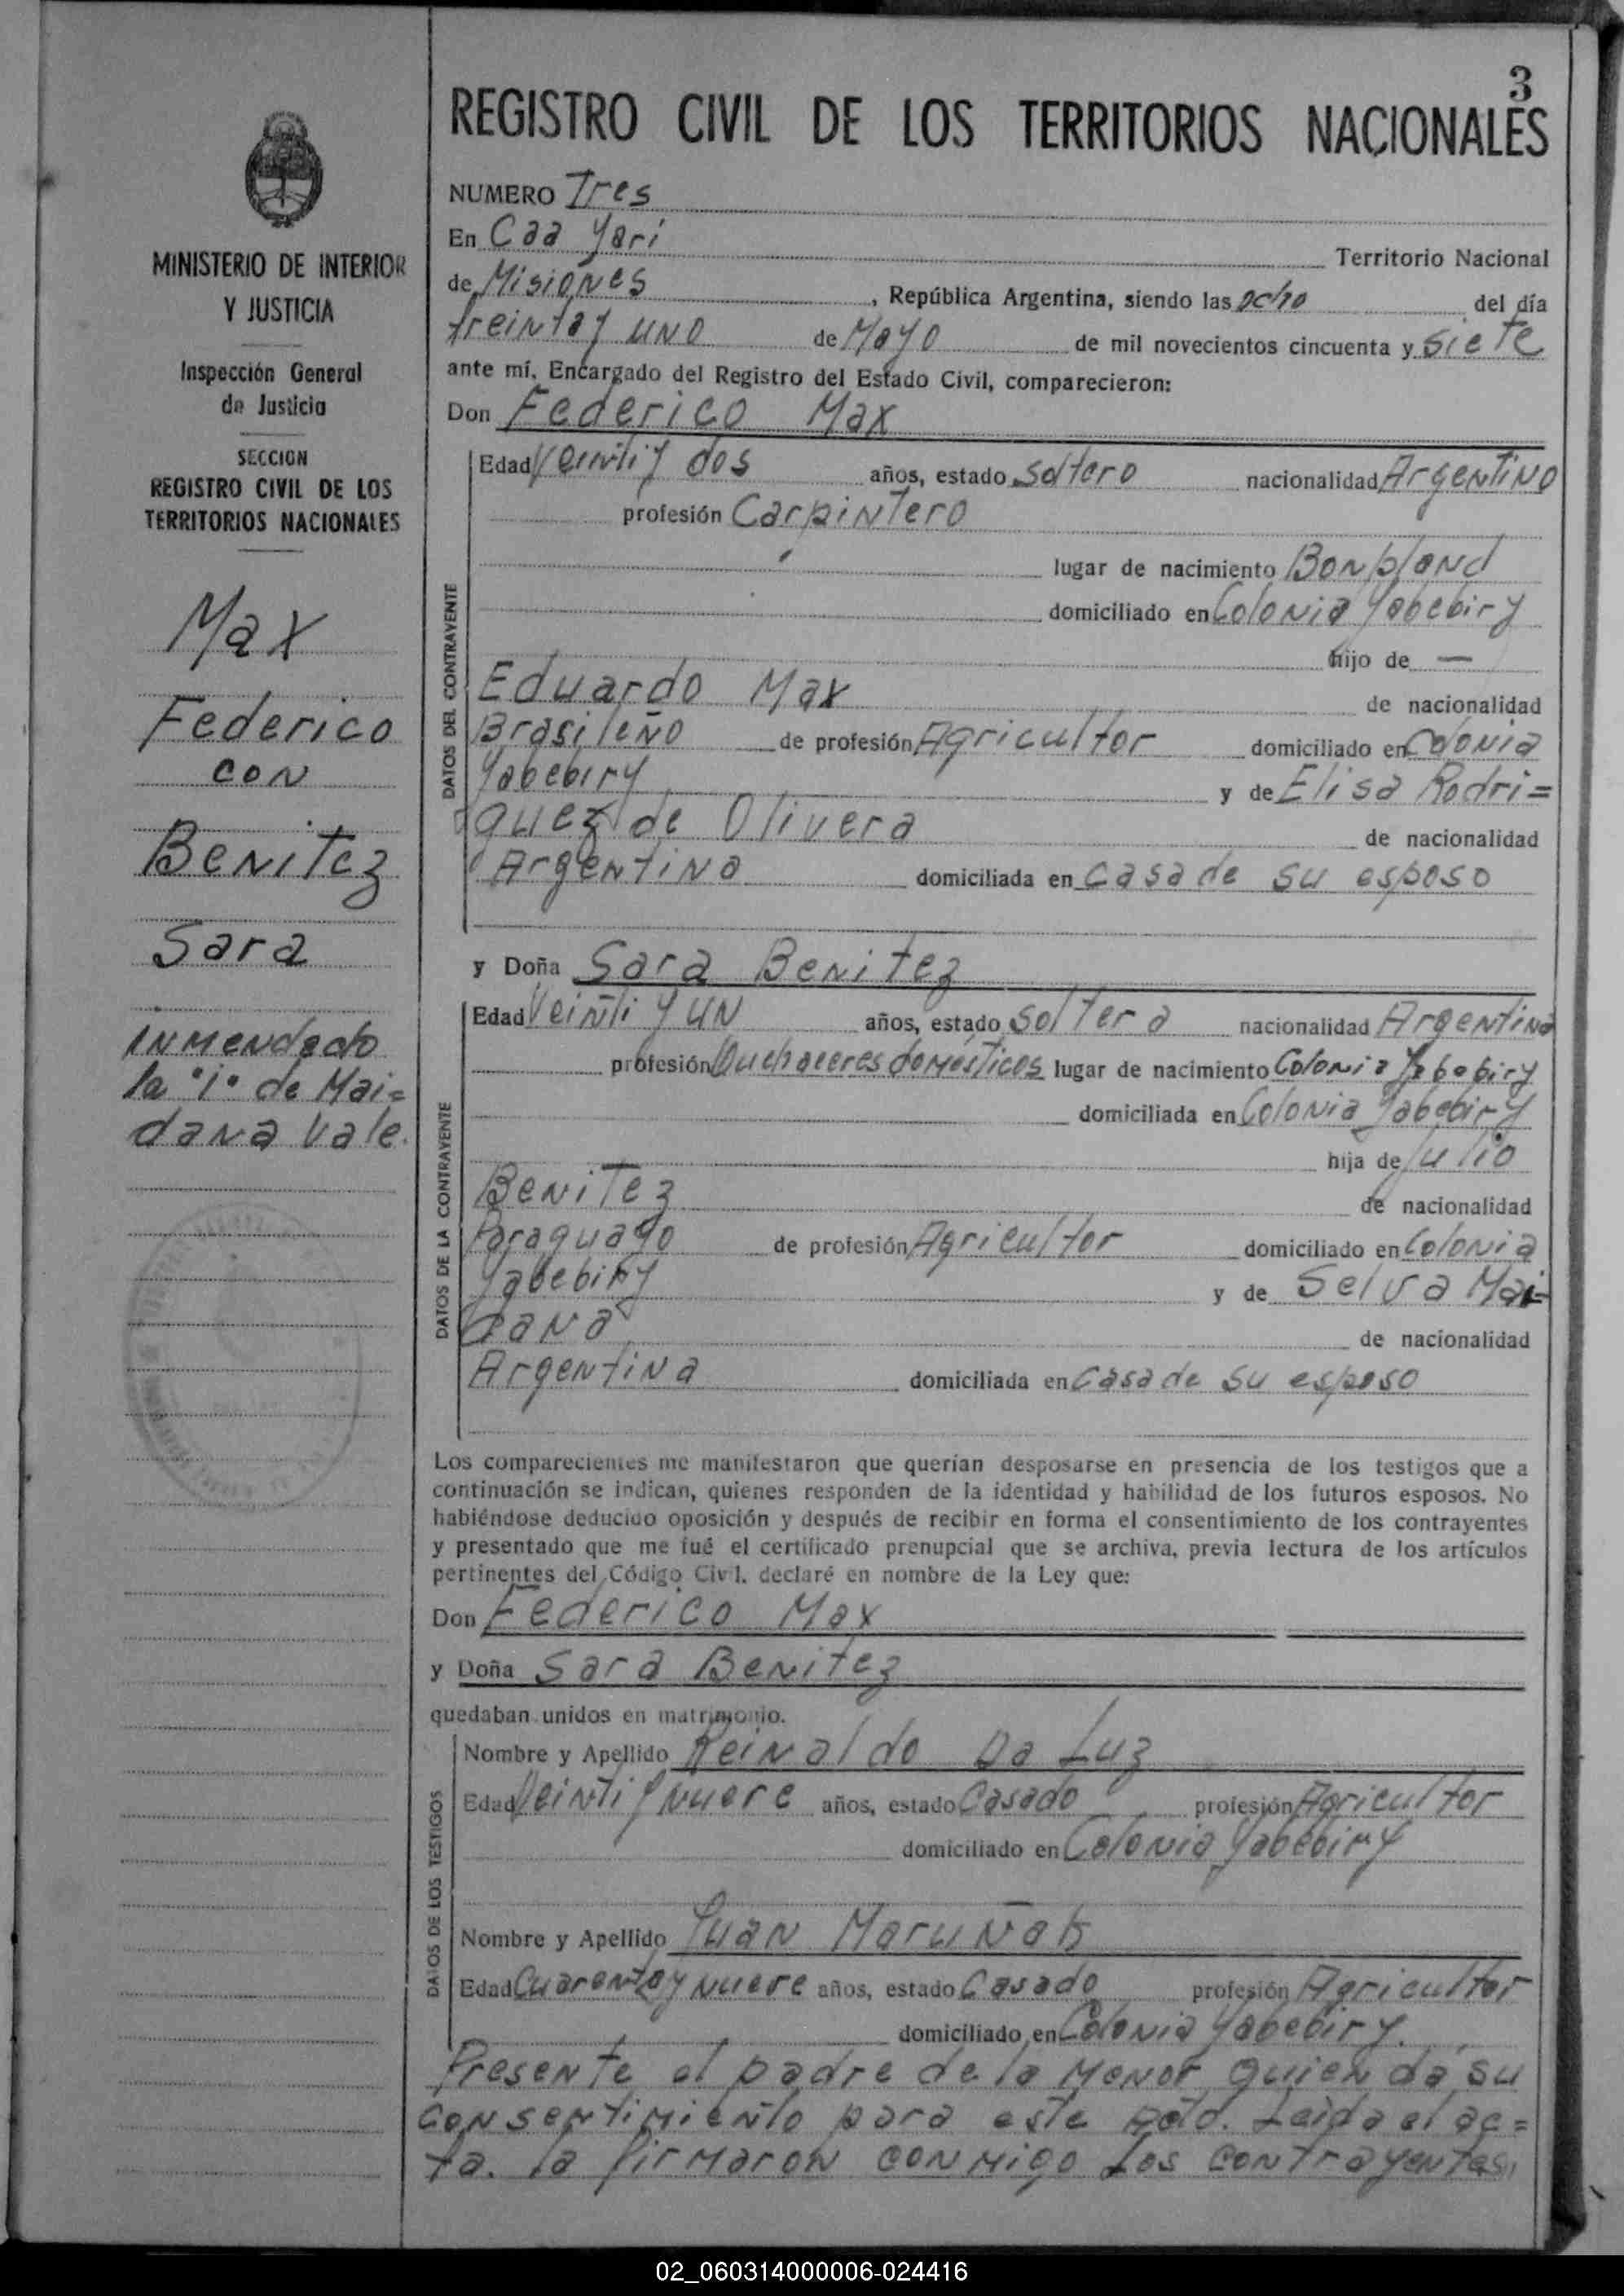 3
REGISTRO CIVIL DE LOS TERRITORIOS NACIONALES
MINISTERIO DE INTERIOR
Y JUSTICIA
Inspección General
de Justicia
SECCION
REGISTRO CIVIL DE LOS
TERRITORIOS NACIONALES
Max
Federico
con
Benitez
Sara
Inmendado
la "i" de Mai=
dana Vale.
NUMERO Tres
En Caa Yari Territorio Nacional
de Misiones, República Argentina, siendo las ocho del día
treinta y uno de Mayo de mil novecientos cincuenta y siete
ante mí, Encargado del Registro del Estado Civil, comparecieron:
Don Federico Max
DATOS DEL CONTRAYENTE
Edad Veinti y dos años, estado soltero nacionalidad Argentino
profesión Carpintero
lugar de nacimiento Bonpland
domiciliado en Colonia Yabebiry
hijo de —
Eduardo Max de nacionalidad
Brasileño de profesión Agricultor domiciliado en Colonia
Yabebiry y de Elisa Rodri=
guez de Olivera de nacionalidad
Argentina domiciliada en casa de su esposo
y Doña Sara Benitez
DATOS DE LA CONTRAYENTE
Edad Veinti y un años, estado soltera nacionalidad Argentina
profesión Quehaceres domésticos lugar de nacimiento Colonia Yabebiry
domiciliada en Colonia Yabebiry
hija de Julio
Benitez de nacionalidad
Paraguayo de profesión Agricultor domiciliado en Colonia
Yabebiry y de Selva Mai=
dana de nacionalidad
Argentina domiciliada en casa de su esposo
Los comparecientes me manifestaron que querían desposarse en presencia de los testigos que a
continuación se indican, quienes responden de la identidad y habilidad de los futuros esposos. No
habiéndose deducido oposición y después de recibir en forma el consentimiento de los contrayentes
y presentado que me fué el certificado prenupcial que se archiva, previa lectura de los artículos
pertinentes del Código Civil, declaré en nombre de la Ley que:
Don Federico Max
y Doña Sara Benitez
quedaban unidos en matrimonio.
DATOS DE LOS TESTIGOS
Nombre y Apellido Reinaldo Da Luz
Edad Veinti y nueve años, estado Casado profesión Agricultor
domiciliado en Colonia Yabebiry
Nombre y Apellido Juan Maruñak
Edad Cuarenta y nueve años, estado Casado profesión Agricultor
domiciliado en Colonia Yabebiry.
Presente el padre de la menor quien da su
consentimiento para este acto. Leida el ac=
ta. la firmaron conmigo los contrayentes,
02_060314000006-024416